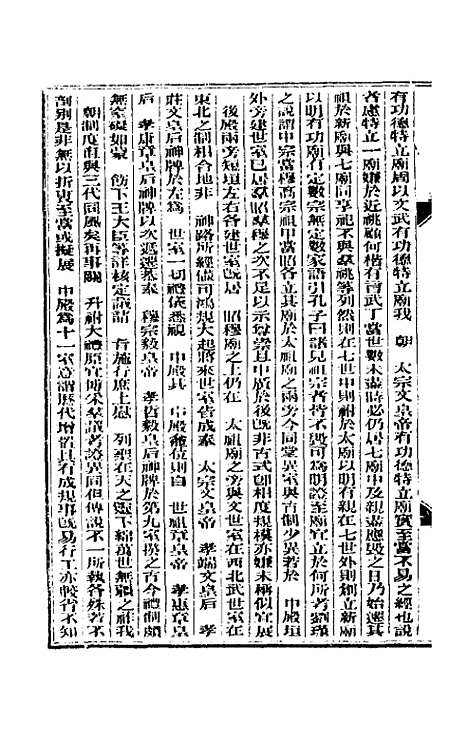 有功德特立廟周以文武有功德特立廟我　朝　太宗文皇帝有功德特立廟實至當不易之經也說
者慮特立一廟嫌於近祧顧何楷有言武丁當世數未盡時必仍居七廟中及親盡應毀之日乃始遷其
祖於新廟與七廟同享祀不與羣祧等列然則在七世中則祔於太廟以明有親在七世外則創立新廟
以明有功廟有定數宗無定數家語引孔子曰諸見祖宗者皆不毀可爲明證至廟宜立於何所考劉瑾
之說謂中宗當穆高宗祖甲當昭各立其廟於太祖廟之兩旁今同堂異室與古制少異若於　中殿垣
外旁建世室已居羣昭羣穆之次不足以示尊崇且中廣於後既非古式卽相度規模亦嫌未稱似宜展
後殿兩旁短垣左右各建世室既居　昭穆廟之上仍在　太祖廟之旁與文世室在西北武世室在
東北之制相合地非　神路所經儘可鴻規大起將來世室皆成奉　太宗文皇帝　孝端文皇后　孝
莊文皇后神牌於左爲　世室一切禮儀悉視　中殿其　中殿龕位則自　世祖章皇帝　孝惠章皇
后　孝康章皇后神牌以次遞遷恭奉　穆宗毅皇帝　孝哲毅皇后神牌於第九室揆之古今禮制頗
無窒礙如蒙　飭下王大臣等詳核定議請　旨施行庶上慰　列聖在天之靈下綿萬世無疆之祚我
朝制度直與三代同風矣再事關　升祔大禮原宜博采羣議考證異同但傳說不一所執各殊若不
剖別是非無以折衷至當或擬展　中殿爲十一室意謂歷代增搢具有成規事既易行工亦較省不知